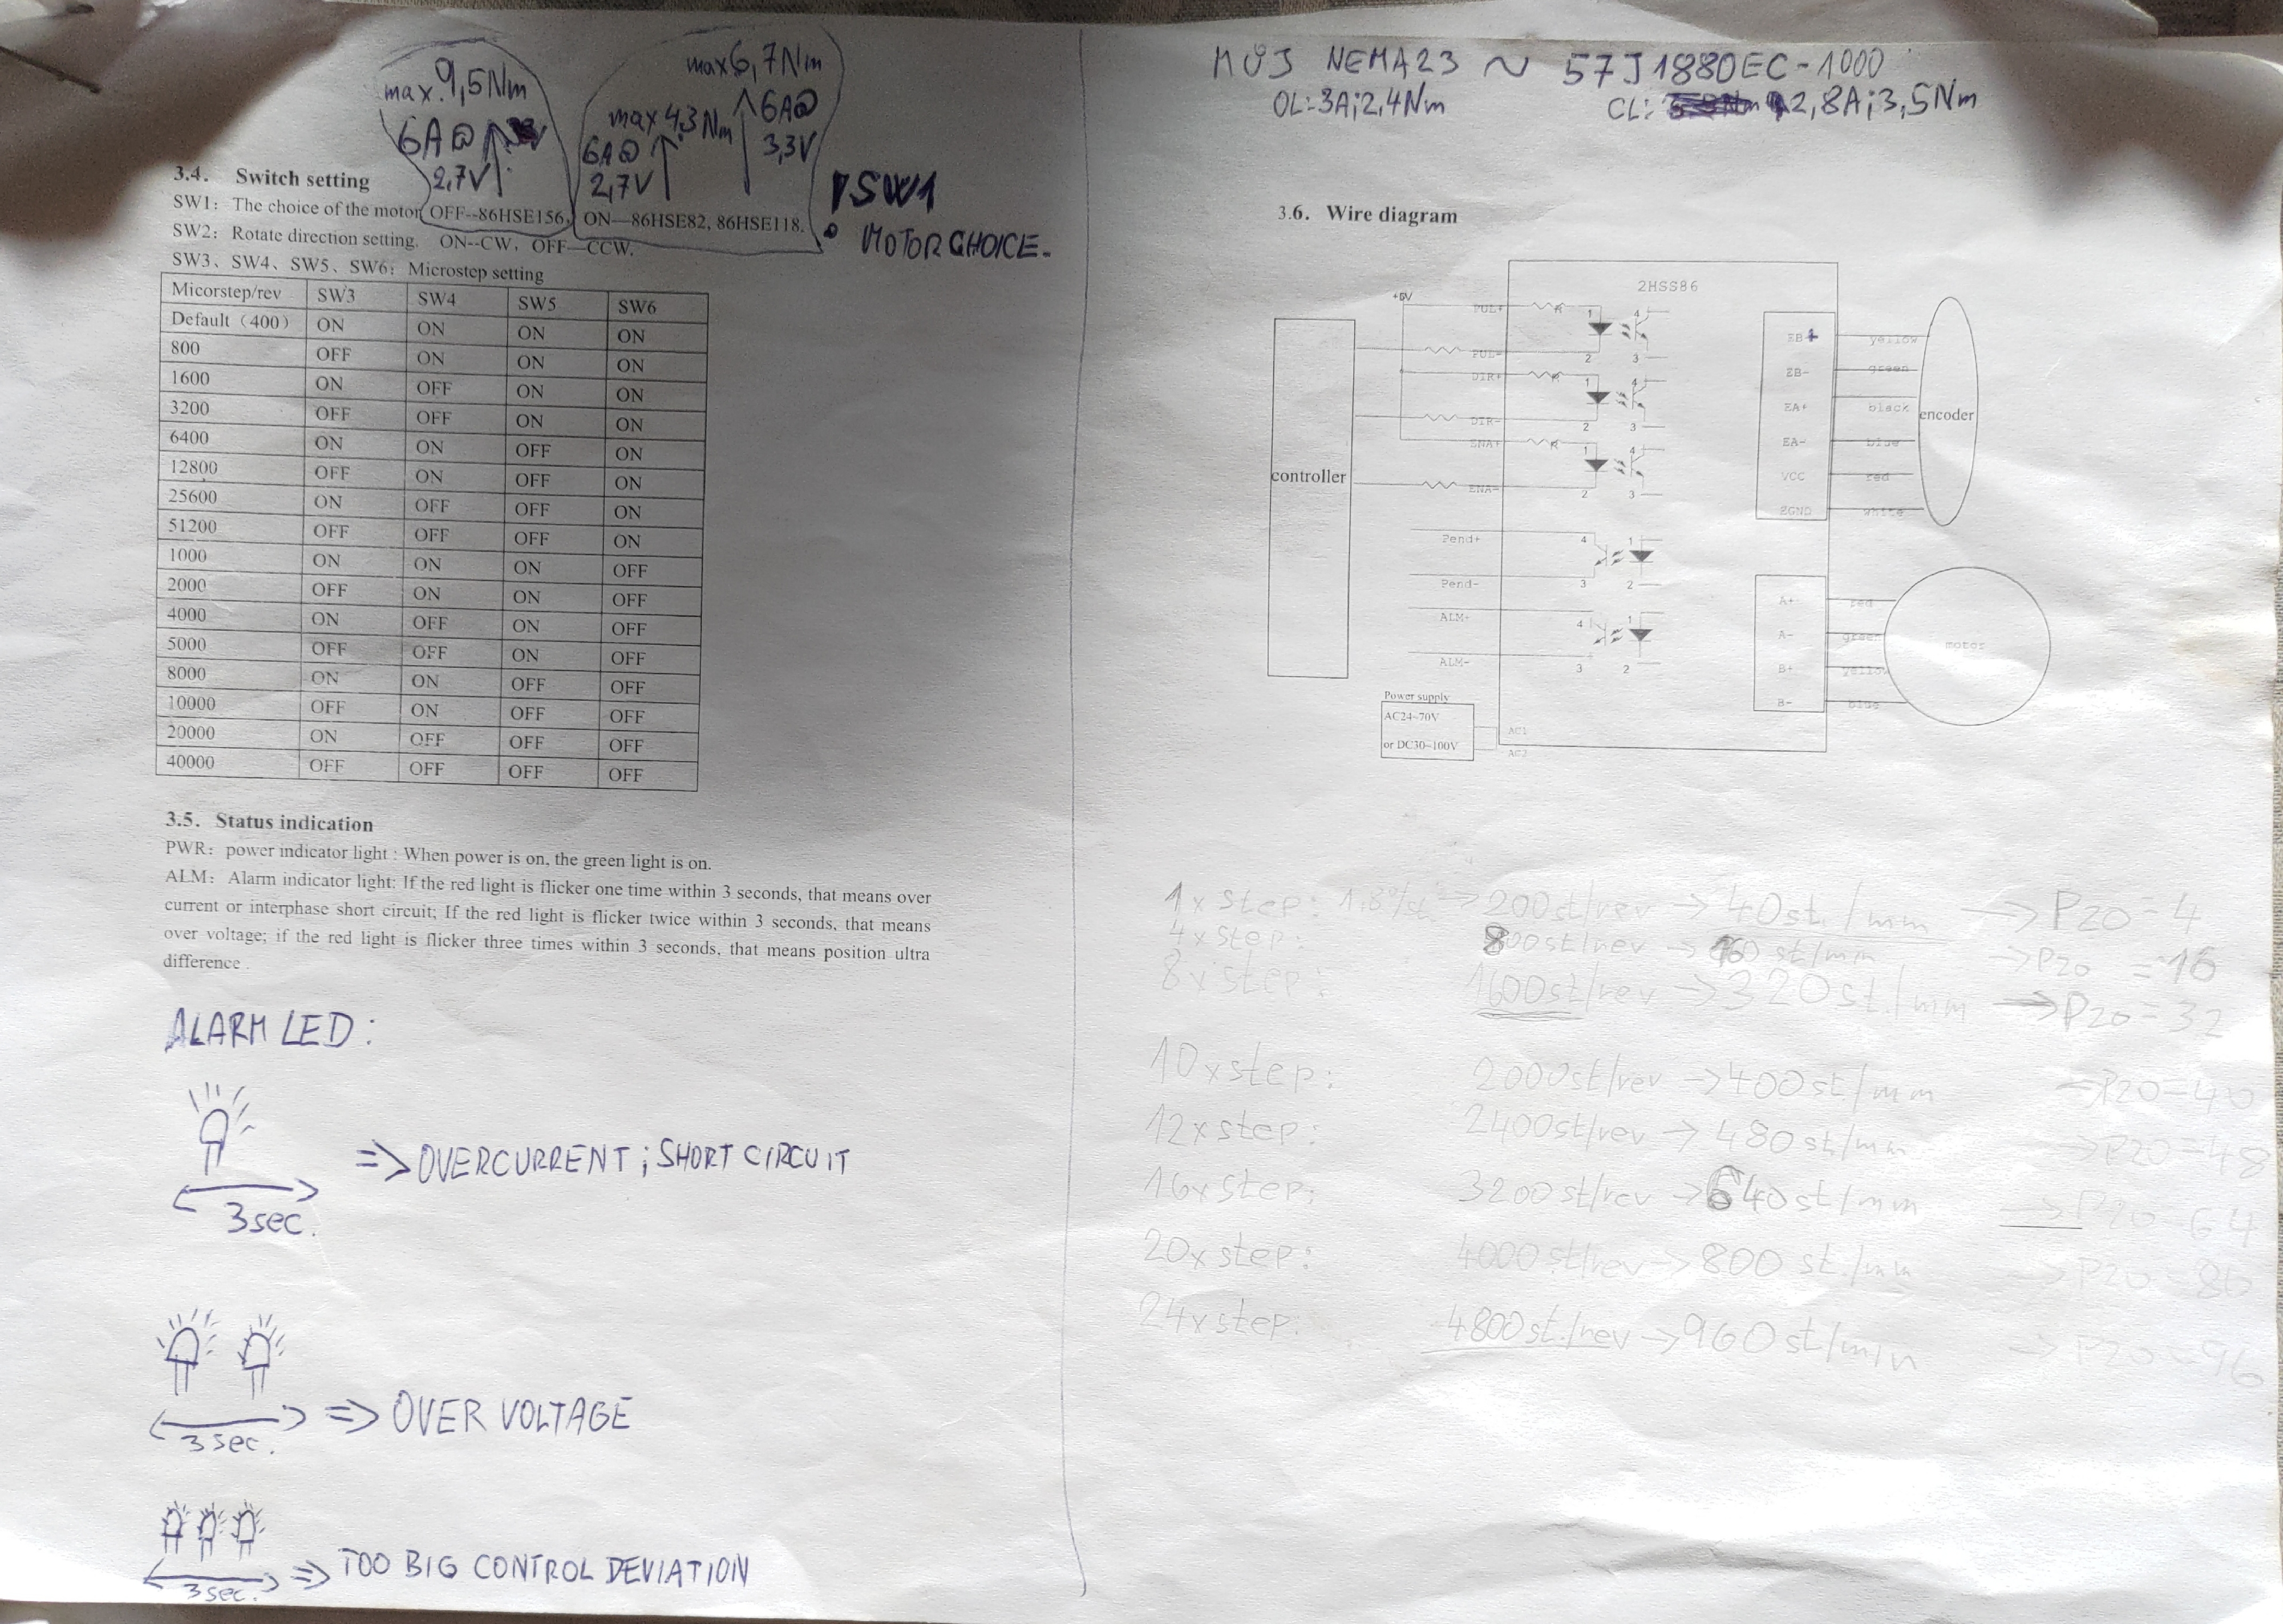 max. 9,5Nm
6A@
2,7V
max 6,7Nm
max 4,3Nm
6A@
3,3V
6A@
2,7V
3.4. Switch setting
SW1: The choice of the motor, OFF--86HSE156, ON—86HSE82, 86HSE118.
SW2: Rotate direction setting, ON--CW, OFF—CCW.
SW3、SW4、SW5、SW6: Microstep setting
! SW1
MOTOR CHOICE.
Micorstep/rev SW3 SW4 SW5 SW6
Default (400) ON ON ON ON
800 OFF ON ON ON
1600 ON OFF ON ON
3200 OFF OFF ON ON
6400 ON ON OFF ON
12800 OFF ON OFF ON
25600 ON OFF OFF ON
51200 OFF OFF OFF ON
1000 ON ON ON OFF
2000 OFF ON ON OFF
4000 ON OFF ON OFF
5000 OFF OFF ON OFF
8000 ON ON OFF OFF
10000 OFF ON OFF OFF
20000 ON OFF OFF OFF
40000 OFF OFF OFF OFF
3.5. Status indication
PWR: power indicator light : When power is on, the green light is on.
ALM: Alarm indicator light: If the red light is flicker one time within 3 seconds, that means over
current or interphase short circuit; If the red light is flicker twice within 3 seconds, that means
over voltage; if the red light is flicker three times within 3 seconds, that means position ultra
difference.
ALARM LED:
3sec.
=> OVERCURRENT; SHORT CIRCUIT
3sec.
=> OVER VOLTAGE
3sec.
=> TOO BIG CONTROL DEVIATION
MŮJ NEMA23 ~ 57J1880EC-1000
OL: 3A; 2,4Nm
CL: 2,8A; 3,5Nm
3.6. Wire diagram
2HSS86
+5V
controller
PUL+
R
1
4
PUL-
2
3
DIR+
R
1
4
DIR-
2
3
ENA+
R
1
4
ENA-
2
3
Pend+
4
1
Pend-
3
2
ALM+
4
1
ALM-
3
2
Power supply
AC24~70V
or DC30~100V
AC1
AC2
EB+ yellow
EB- green
EA+ black
EA- blue
VCC red
EGND white
encoder
A+ red
A- green
B+ yellow
B- blue
motor
1x step: 1.8°/st → 200st/rev → 40st./mm → P20=4
4x step: 800st/rev → 160 st/mm → P20 = 16
8x step: 1600st/rev → 320st./mm → P20=32
10x step: 2000st/rev → 400st/mm → P20=40
12x step: 2400st/rev → 480st/mm → P20=48
16x step: 3200st/rev → 640st/mm → P20=64
20x step: 4000st/rev → 800 st./mm → P20=80
24x step: 4800st./rev → 960st/min → P20=96